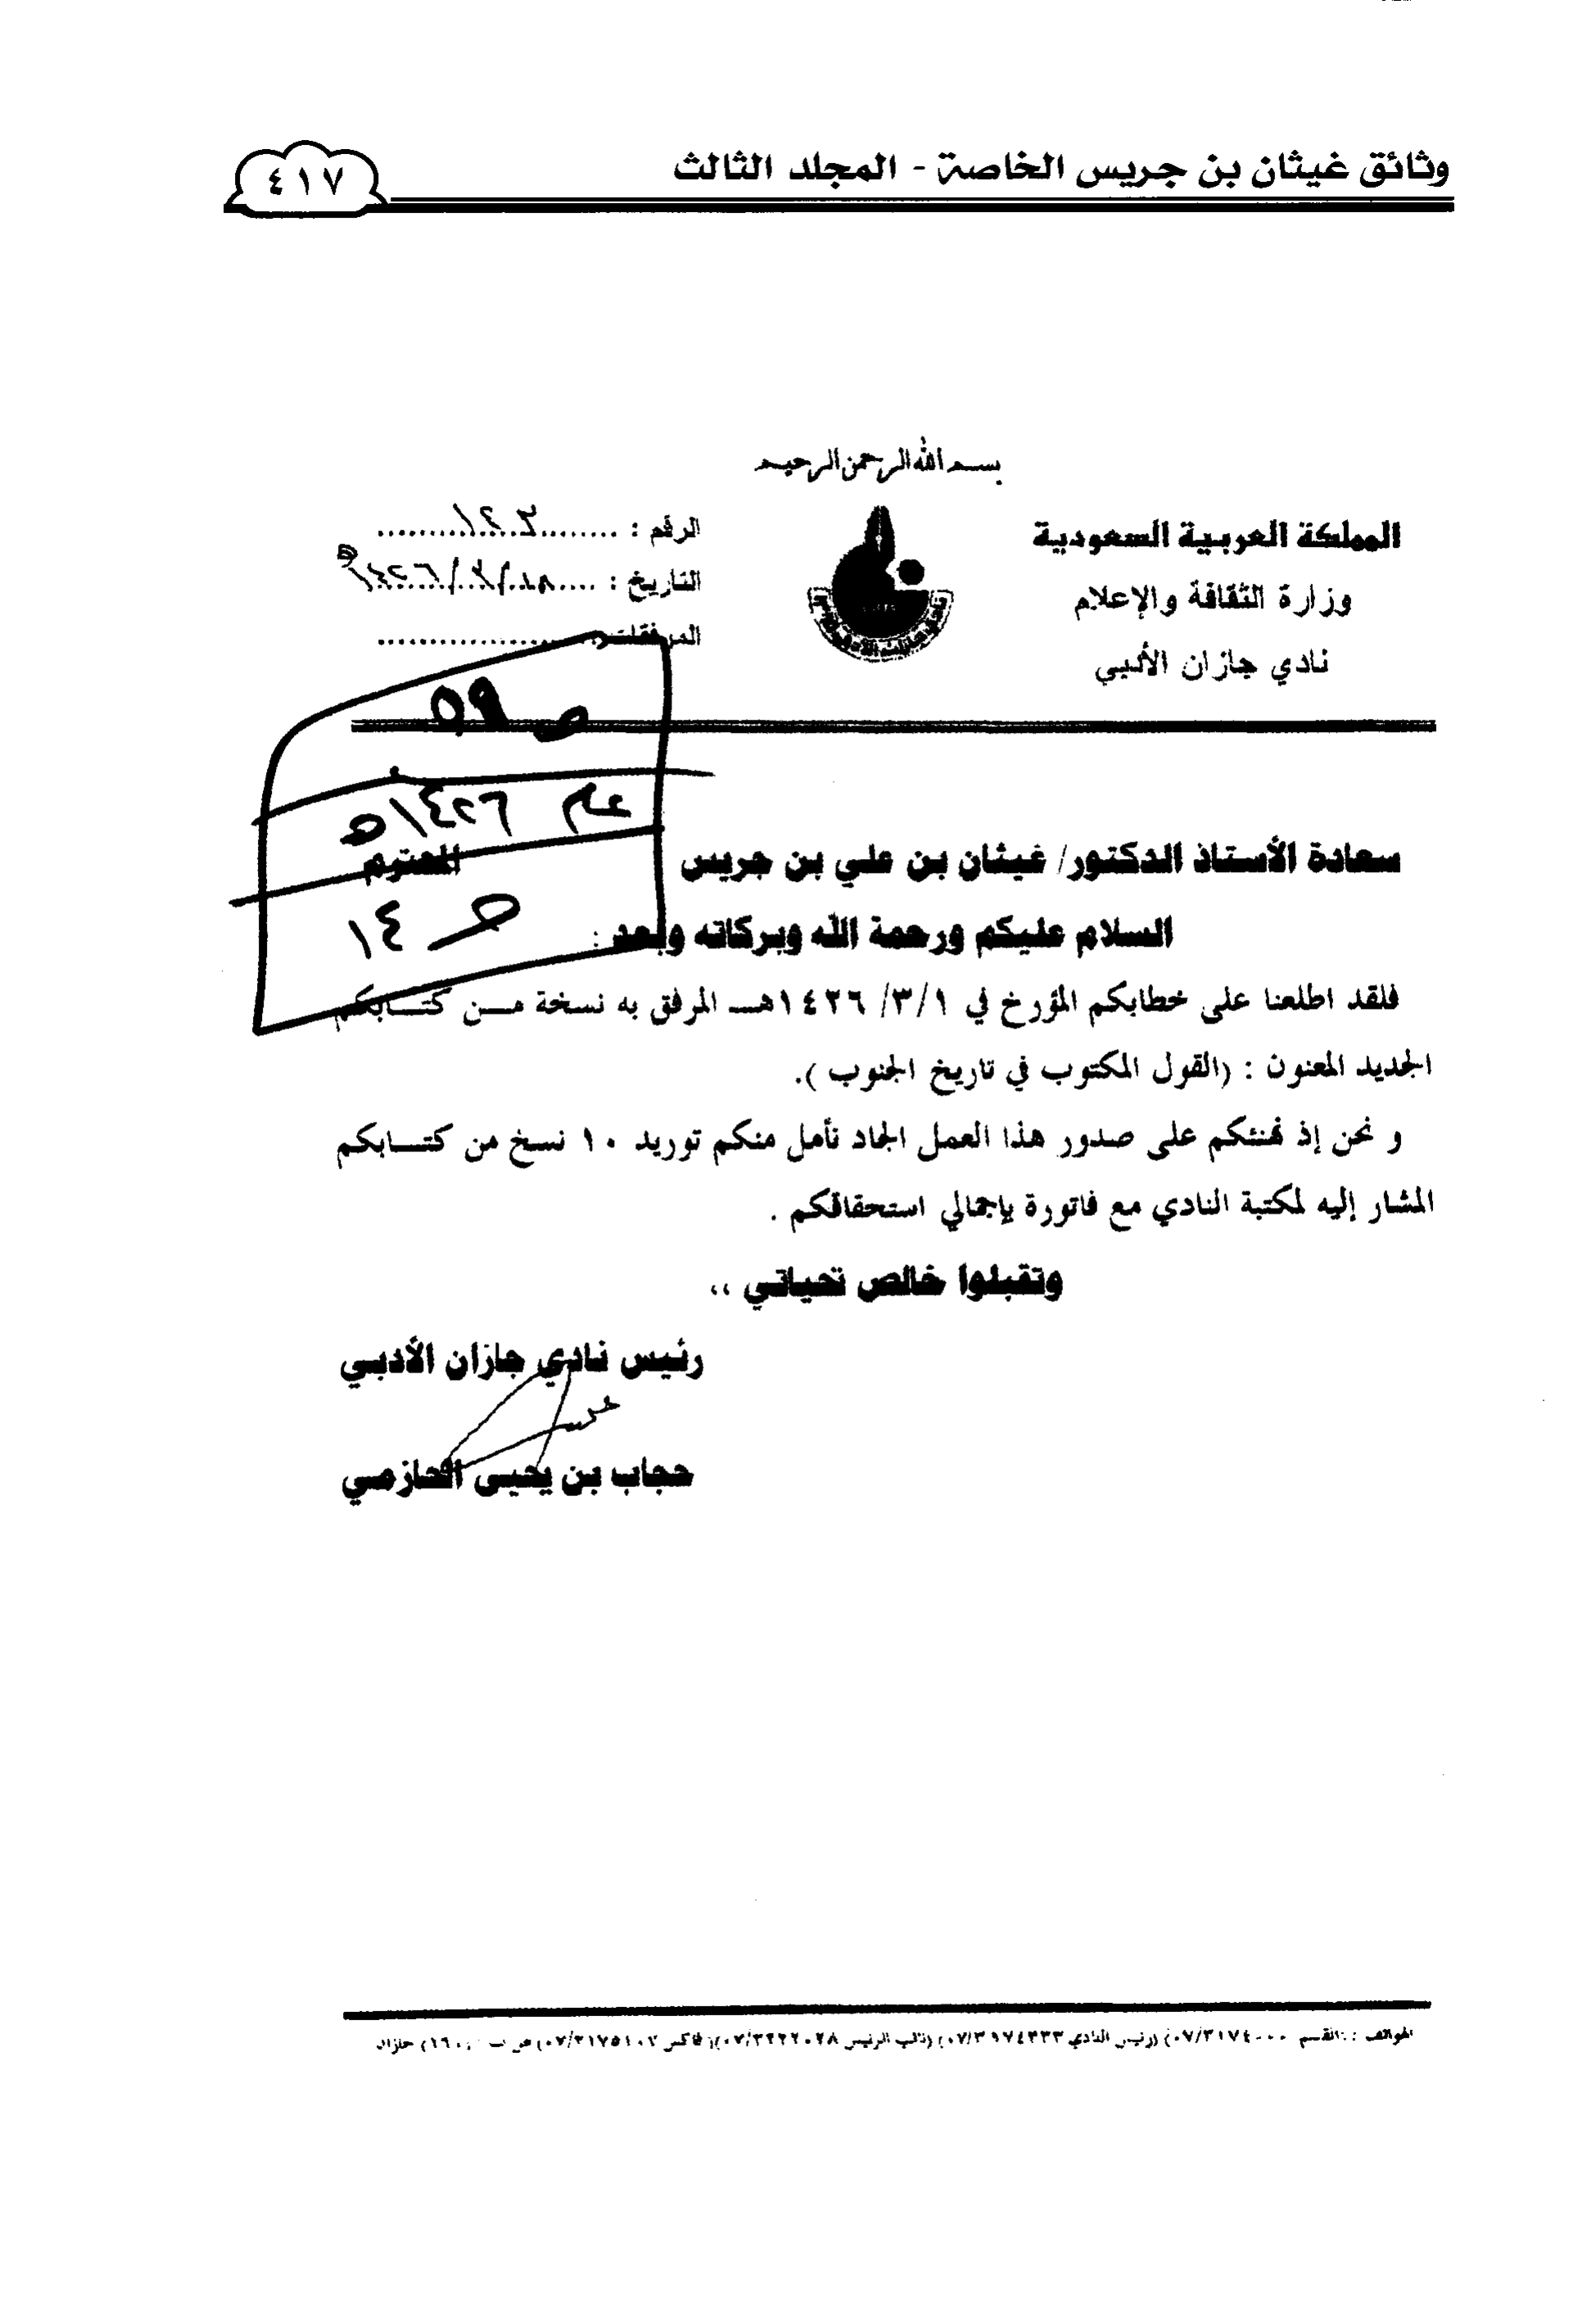 وثائق غيثان بن جريس الخاصة - المجلد الثالث
٤١٧
بسم الله الرحمن الرحيم
المملكة العربية السعودية
وزارة الثقافة والإعلام
نادي جازان الأدبي
الرقم : ١٤٠٢
التاريخ : ١٨/٣/١٤٢٦هـ
المرفقات :
ص ٥٩
عام ١٤٢٦هـ
ص ١٤
سعادة الأستاذ الدكتور/ غيثان بن علي بن جريس المحترم
السلام عليكم ورحمة الله وبركاته وبعد :
فلقد اطلعنا على خطابكم المؤرخ في ١/٣/ ١٤٢٦هـــ المرفق به نسخة مـــن كتـــابكم
الجديد المعنون : (القول المكتوب في تاريخ الجنوب ).
و نحن إذ نهنئكم على صدور هذا العمل الجاد نأمل منكم توريد ١٠ نسخ من كتـــابكم
المشار إليه لمكتبة النادي مع فاتورة بإجمالي استحقاقكم .
وتقبلوا خالص تحياتي ،،
رئيس نادي جازان الأدبي
حجاب بن يحيى الحازمي
الهواتف : القسم (رئيس النادي (نائب الرئيس ٠٧/٣٢٢٢٠٢٨) (فاكس ٠٧/٣١٧٥١٠٧) ص ب جازان